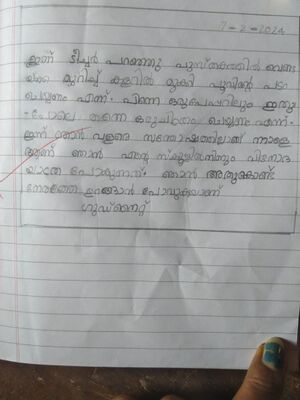 7-2-2024
ഇന്ന് ടീച്ചർ പറഞ്ഞു പുസ്തകത്തിൽ വെണ്ട
യ്ക്ക മുറിച്ച് കളറിൽ മുക്കി പൂവിന്റെ പടം
ചെയ്യണം എന്ന്. പിന്നെ ഒരു പേപ്പറിലും ഇതു
പോലെ തന്നെ ഒരു ചിത്രം ചെയ്യണം എന്ന്.
ഇന്ന് ഞാൻ വളരെ സന്തോഷത്തിലാണ് നാളെ
ആണ് ഞാൻ എന്റെ സ്കൂളിൽനിന്നും വിനോദ
യാത്ര പോകുന്നത്. ഞാൻ അതുകൊണ്ട്
നേരത്തേ ഉറങ്ങാൻ പോവുകയാണ്
ഗുഡ്നൈറ്റ്